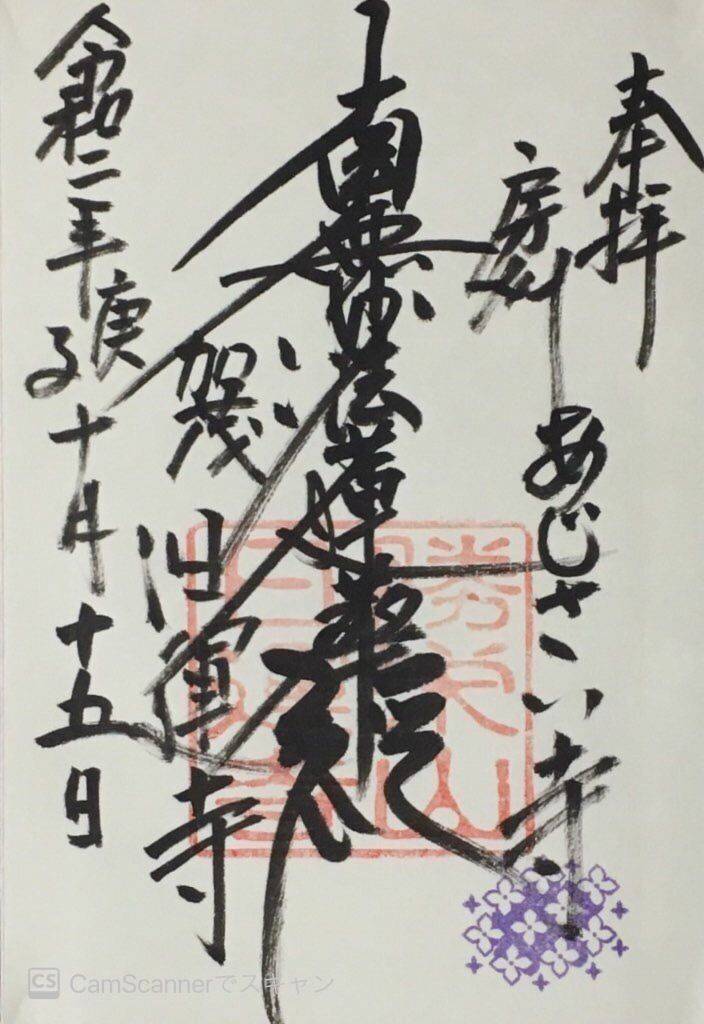 奉拝
房州
あじさい寺
南無妙法蓮華経
賀茂
日運寺
令和二年庚子十月十五日
勝栄山
日運寺
CS CamScannerでスキャン